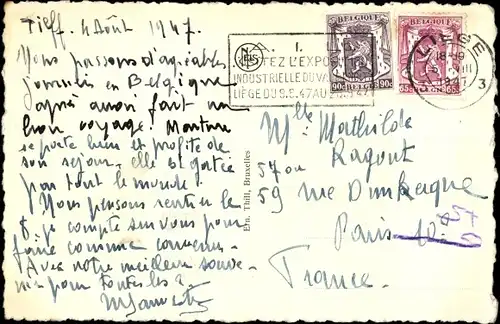 Tieff. 4 Août 1947.
Nous passons d'agréables
journées en Belgique
après avoir fait un
bon voyage.
se porte bien et profite de
son séjour. elle est gâtée
par tout le monde.
Nous pensons rentrer le
8. je compte sur vous pour
faire comme convenu.
Avec notre meilleur souve-
nir pour toutes les 2.
BELGIQUE BELGIE
90c 90c
65c 65c
VISITEZ L'EXPOSITION
INDUSTRIELLE DU VAL
LIÈGE DU
LIEGE
18-19
3
Ern. Thill, Bruxelles
Mlle Mathilde
Ragout
57 ou
59 rue Dunkerque
Paris 10e
France.